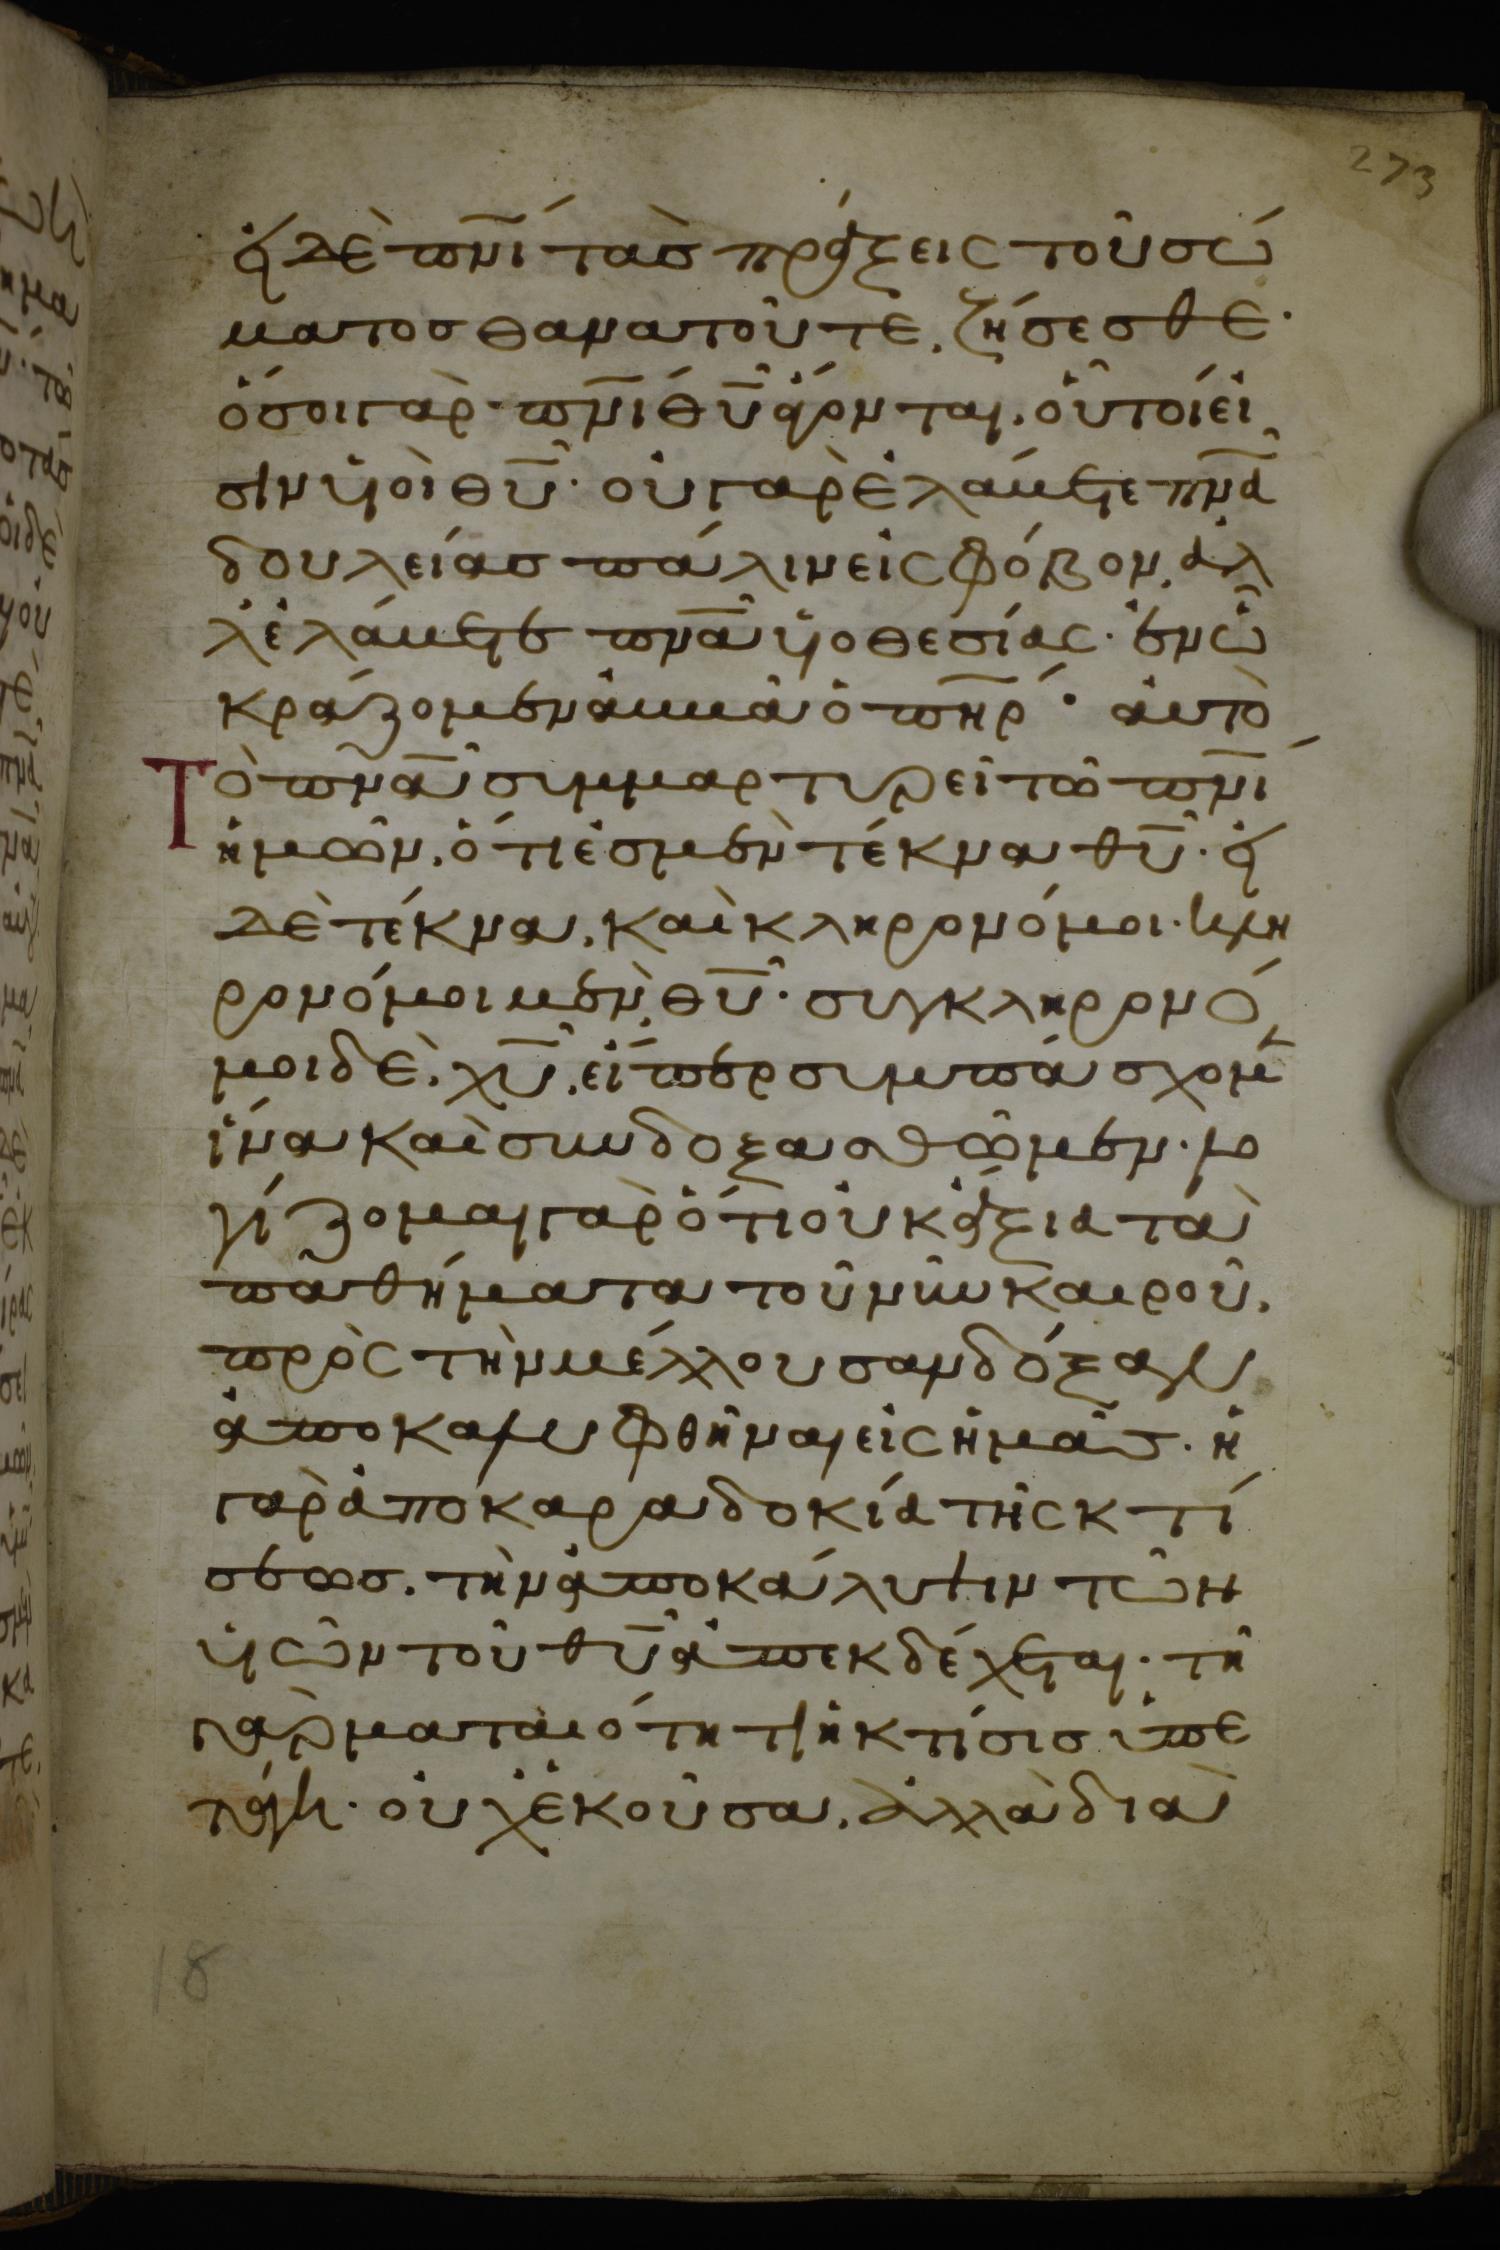 273
εἰ δὲ πνι τὰσ πράξεις τοῦ σώ
ματοσ θανατοῦτε, ζήσεσθε·
ὅσοι γὰρ πνι θυ ἄγονται, οὗτοί εἰ
σιν υἱοὶ θυ· οὐ γὰρ ἐλάβετε πνα
δουλείασ πάλιν εἰς φόβον, ἀλ
λ ἐλάβετε πνα υἱοθεσίας· ἐν ὧ
κράζομεν ἀββᾶ ὁ πηρ· αὐτὸ
Τὸ πνα συμμαρτυρεῖ τῶ πνι
ἡμῶν, ὅτι ἐσμὲν τέκνα θυ· εἰ
δὲ τέκνα, καὶ κληρονόμοι· κλη
ρονόμοι μὲν θυ· συγκληρονό
μοι δὲ χυ, εἴπερ συμπάσχομε
ἵνα καὶ συνδοξασθῶμεν· λο
γίζομαι γὰρ ὅτι οὐκ ἄξια τὰ
παθήματα τοῦ νῦν καιροῦ,
πρὸς τὴν μέλλουσαν δόξαν
ἀποκαλυφθῆναι εἰς ἡμᾶσ· ἡ
γὰρ ἀποκαραδοκία τῆς κτί
σεωσ, τὴν ἀποκάλυψιν τῶν
υἱῶν τοῦ θυ ἀπεκδέχεται· τῆ
γὰρ ματαιότητι ἡ κτίσισ ὑπε
τάγη· οὐχ ἑκοῦσα, ἀλλὰ διὰ
18